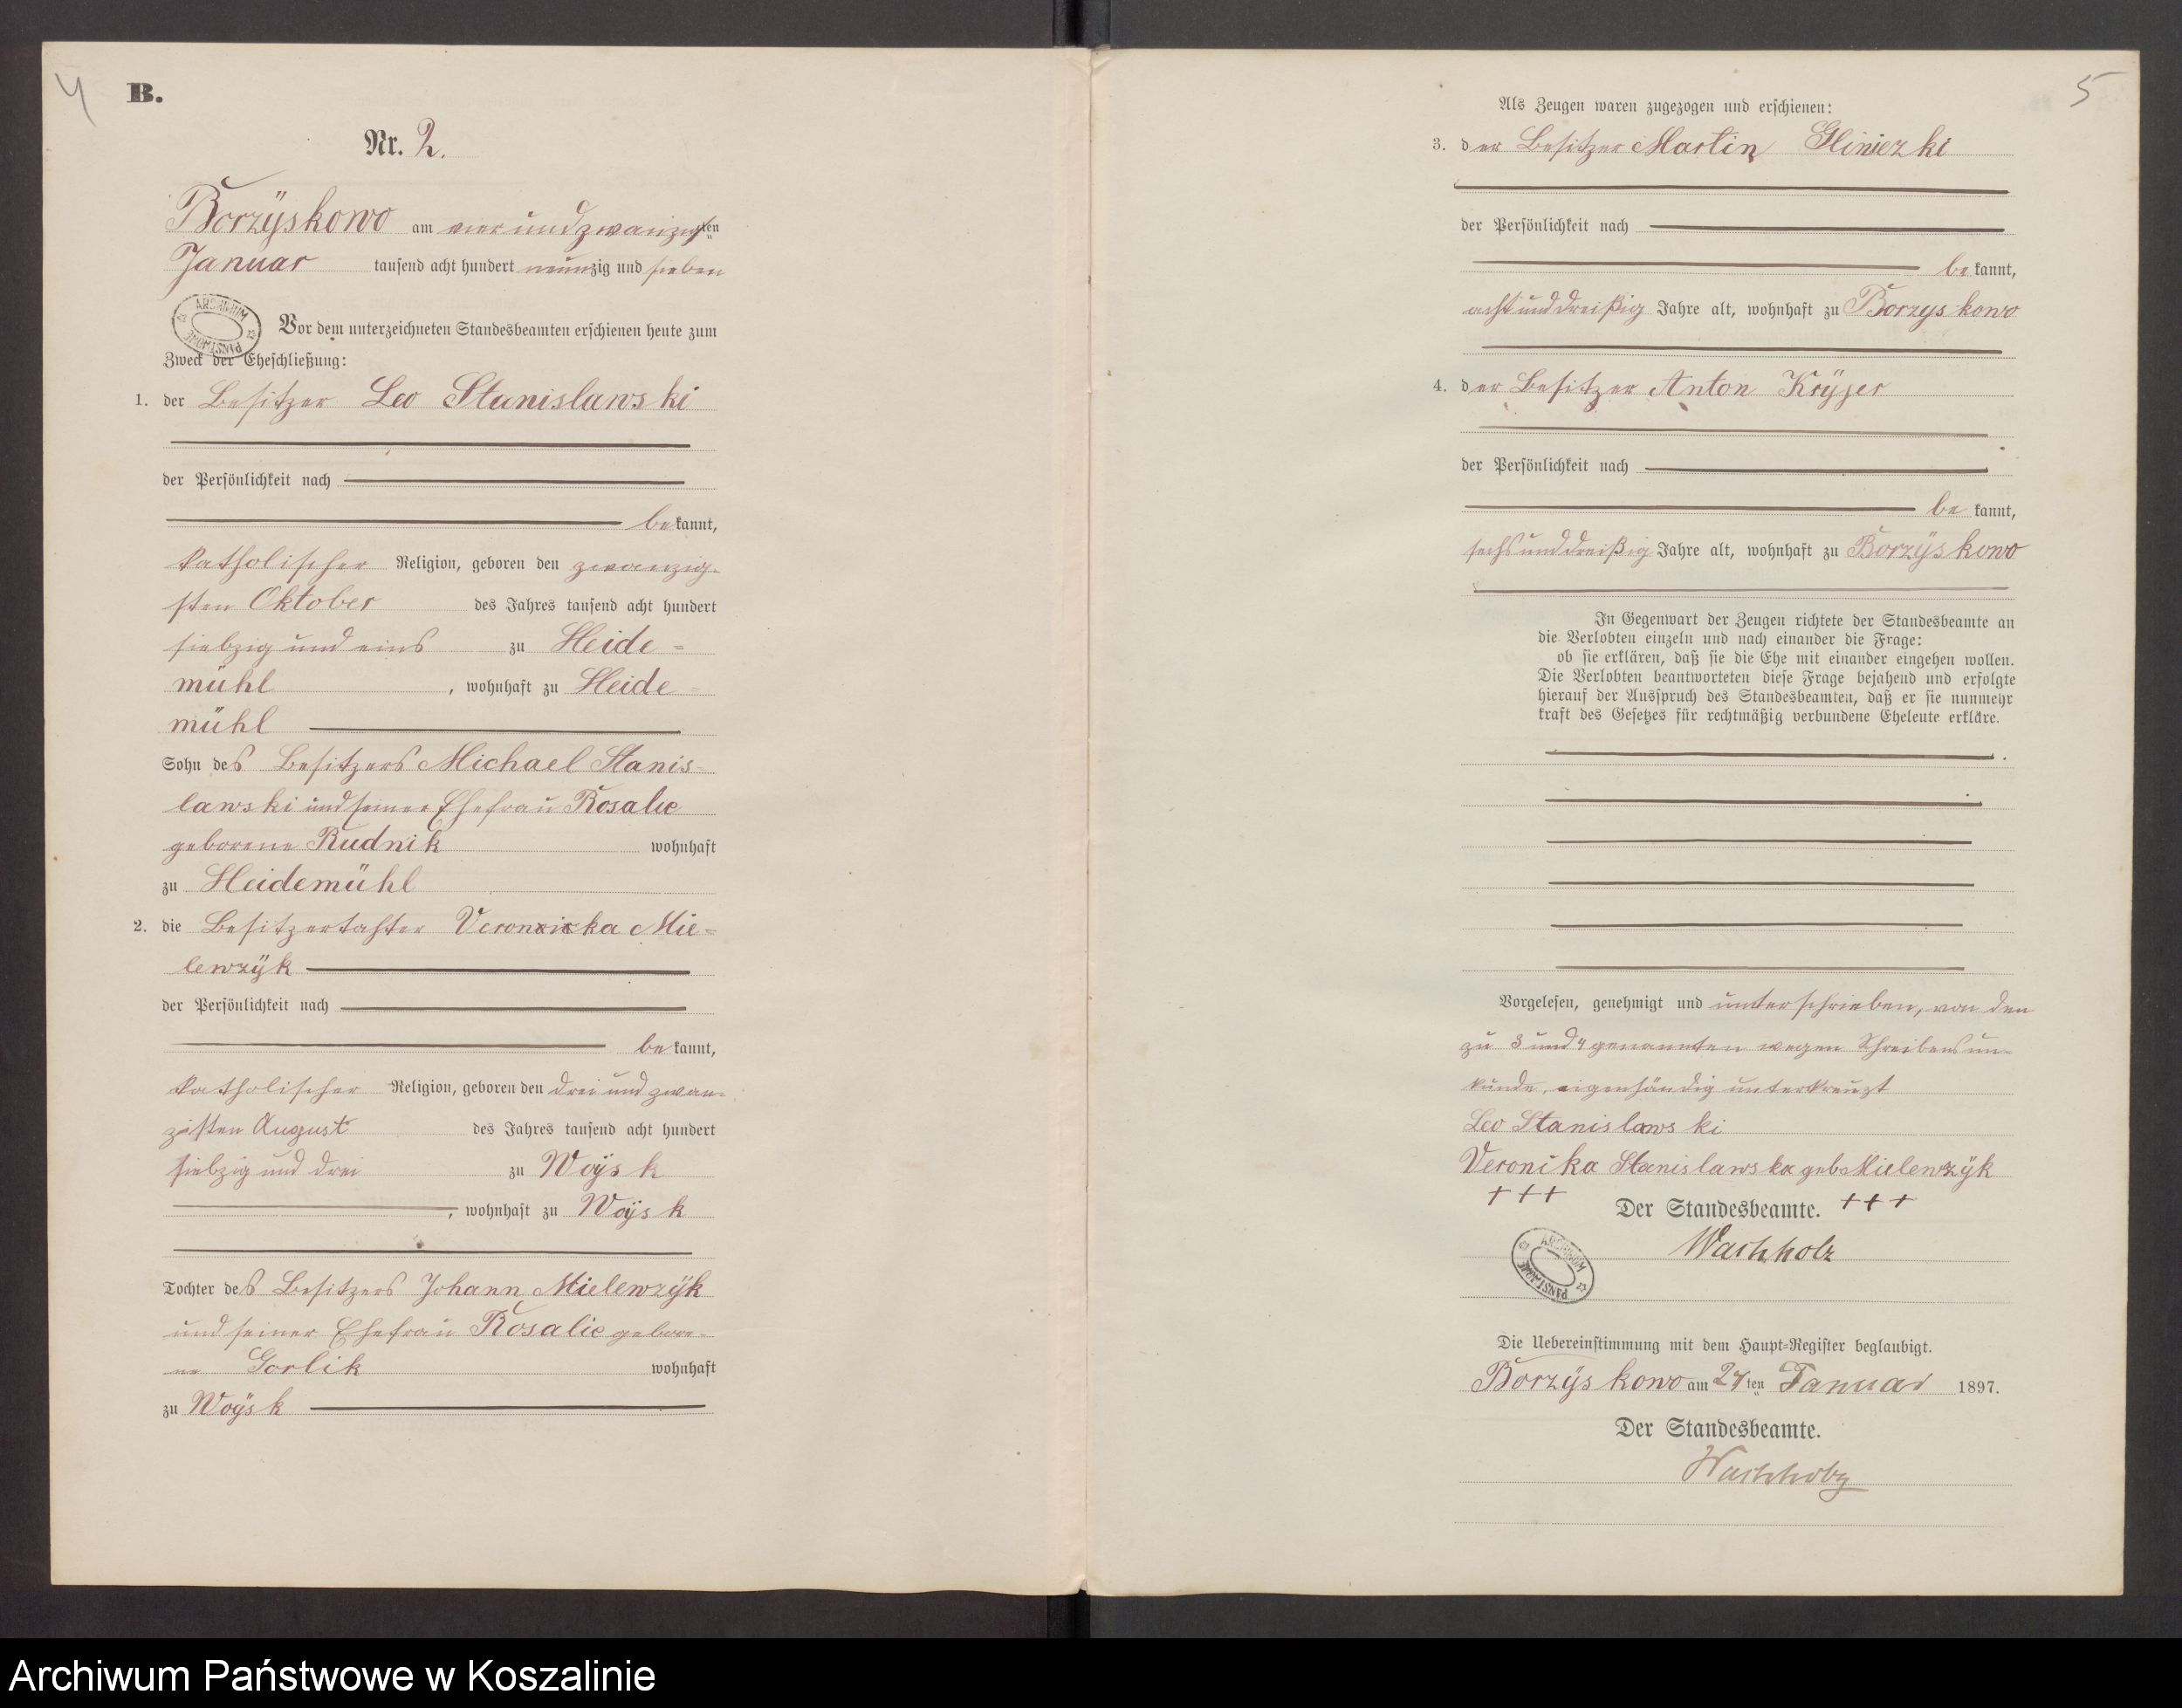 4
B.
Nr. 2.
Borzÿskowo am vier und zwanzigsten
Januar tausend acht hundert neunzig und sieben
ARCHIWUM PAŃSTWOWE
Vor dem unterzeichneten Standesbeamten erschienen heute zum
Zweck der Eheschließung:
1. der Besitzer Leo Stanislawski
der Persönlichkeit nach
bekannt,
katholischer Religion, geboren den zwanzig-
sten Oktober des Jahres tausend acht hundert
siebzig und eins zu Heide-
mühl, wohnhaft zu Heide-
mühl
Sohn des Besitzers Michael Stanis-
lawski und seiner Ehefrau Rosalie
geborene Rudnik wohnhaft
zu Heidemühl
2. die Besitzertochter Veronika Mie-
lewzÿk
der Persönlichkeit nach
bekannt,
katholischer Religion, geboren den drei und zwan-
zigsten August des Jahres tausend acht hundert
siebzig und drei zu Woÿsk
, wohnhaft zu Woÿsk
Tochter des Besitzers Johann Mielewzÿk
und seiner Ehefrau Rosalie gebore-
ne Gorlik wohnhaft
zu Woÿsk
5
Als Zeugen waren zugezogen und erschienen:
3. der Besitzer Martin Gliniezki
der Persönlichkeit nach
bekannt,
acht und dreißig Jahre alt, wohnhaft zu Borzyskowo
4. der Besitzer Anton Krÿjer
der Persönlichkeit nach
bekannt,
sechs und dreißig Jahre alt, wohnhaft zu Borzÿskowo
In Gegenwart der Zeugen richtete der Standesbeamte an
die Verlobten einzeln und nach einander die Frage:
ob sie erklären, daß sie die Ehe mit einander eingehen wollen.
Die Verlobten beantworteten diese Frage bejahend und erfolgte
hierauf der Ausspruch des Standesbeamten, daß er sie nunmehr
kraft des Gesetzes für rechtmäßig verbundene Eheleute erkläre.
Vorgelesen, genehmigt und unterschrieben, von den
zu 3 und 4 genannten wegen Schreibensun-
kunde, eigenhändig unterkreuzt
Leo Stanislawski
Veronika Stanislawska geb Mielewzÿk
+++ Der Standesbeamte. +++
Wachholz
ARCHIWUM PAŃSTWOWE
Die Uebereinstimmung mit dem Haupt-Register beglaubigt.
Borzÿskowo am 24ten Januar 1897.
Der Standesbeamte.
Wachholz
Archiwum Państwowe w Koszalinie